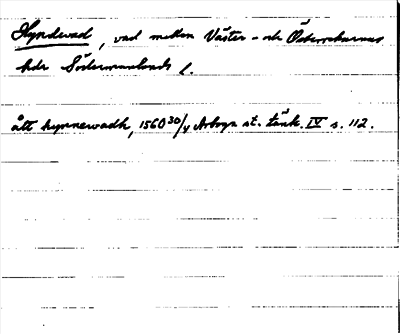 Hyndevad, vad mellan Väster- och Österrekarne
hdr Södermanlands l.
ått hynnewadh, 1560 30/4 Arboga st. tänk. IV s. 112.